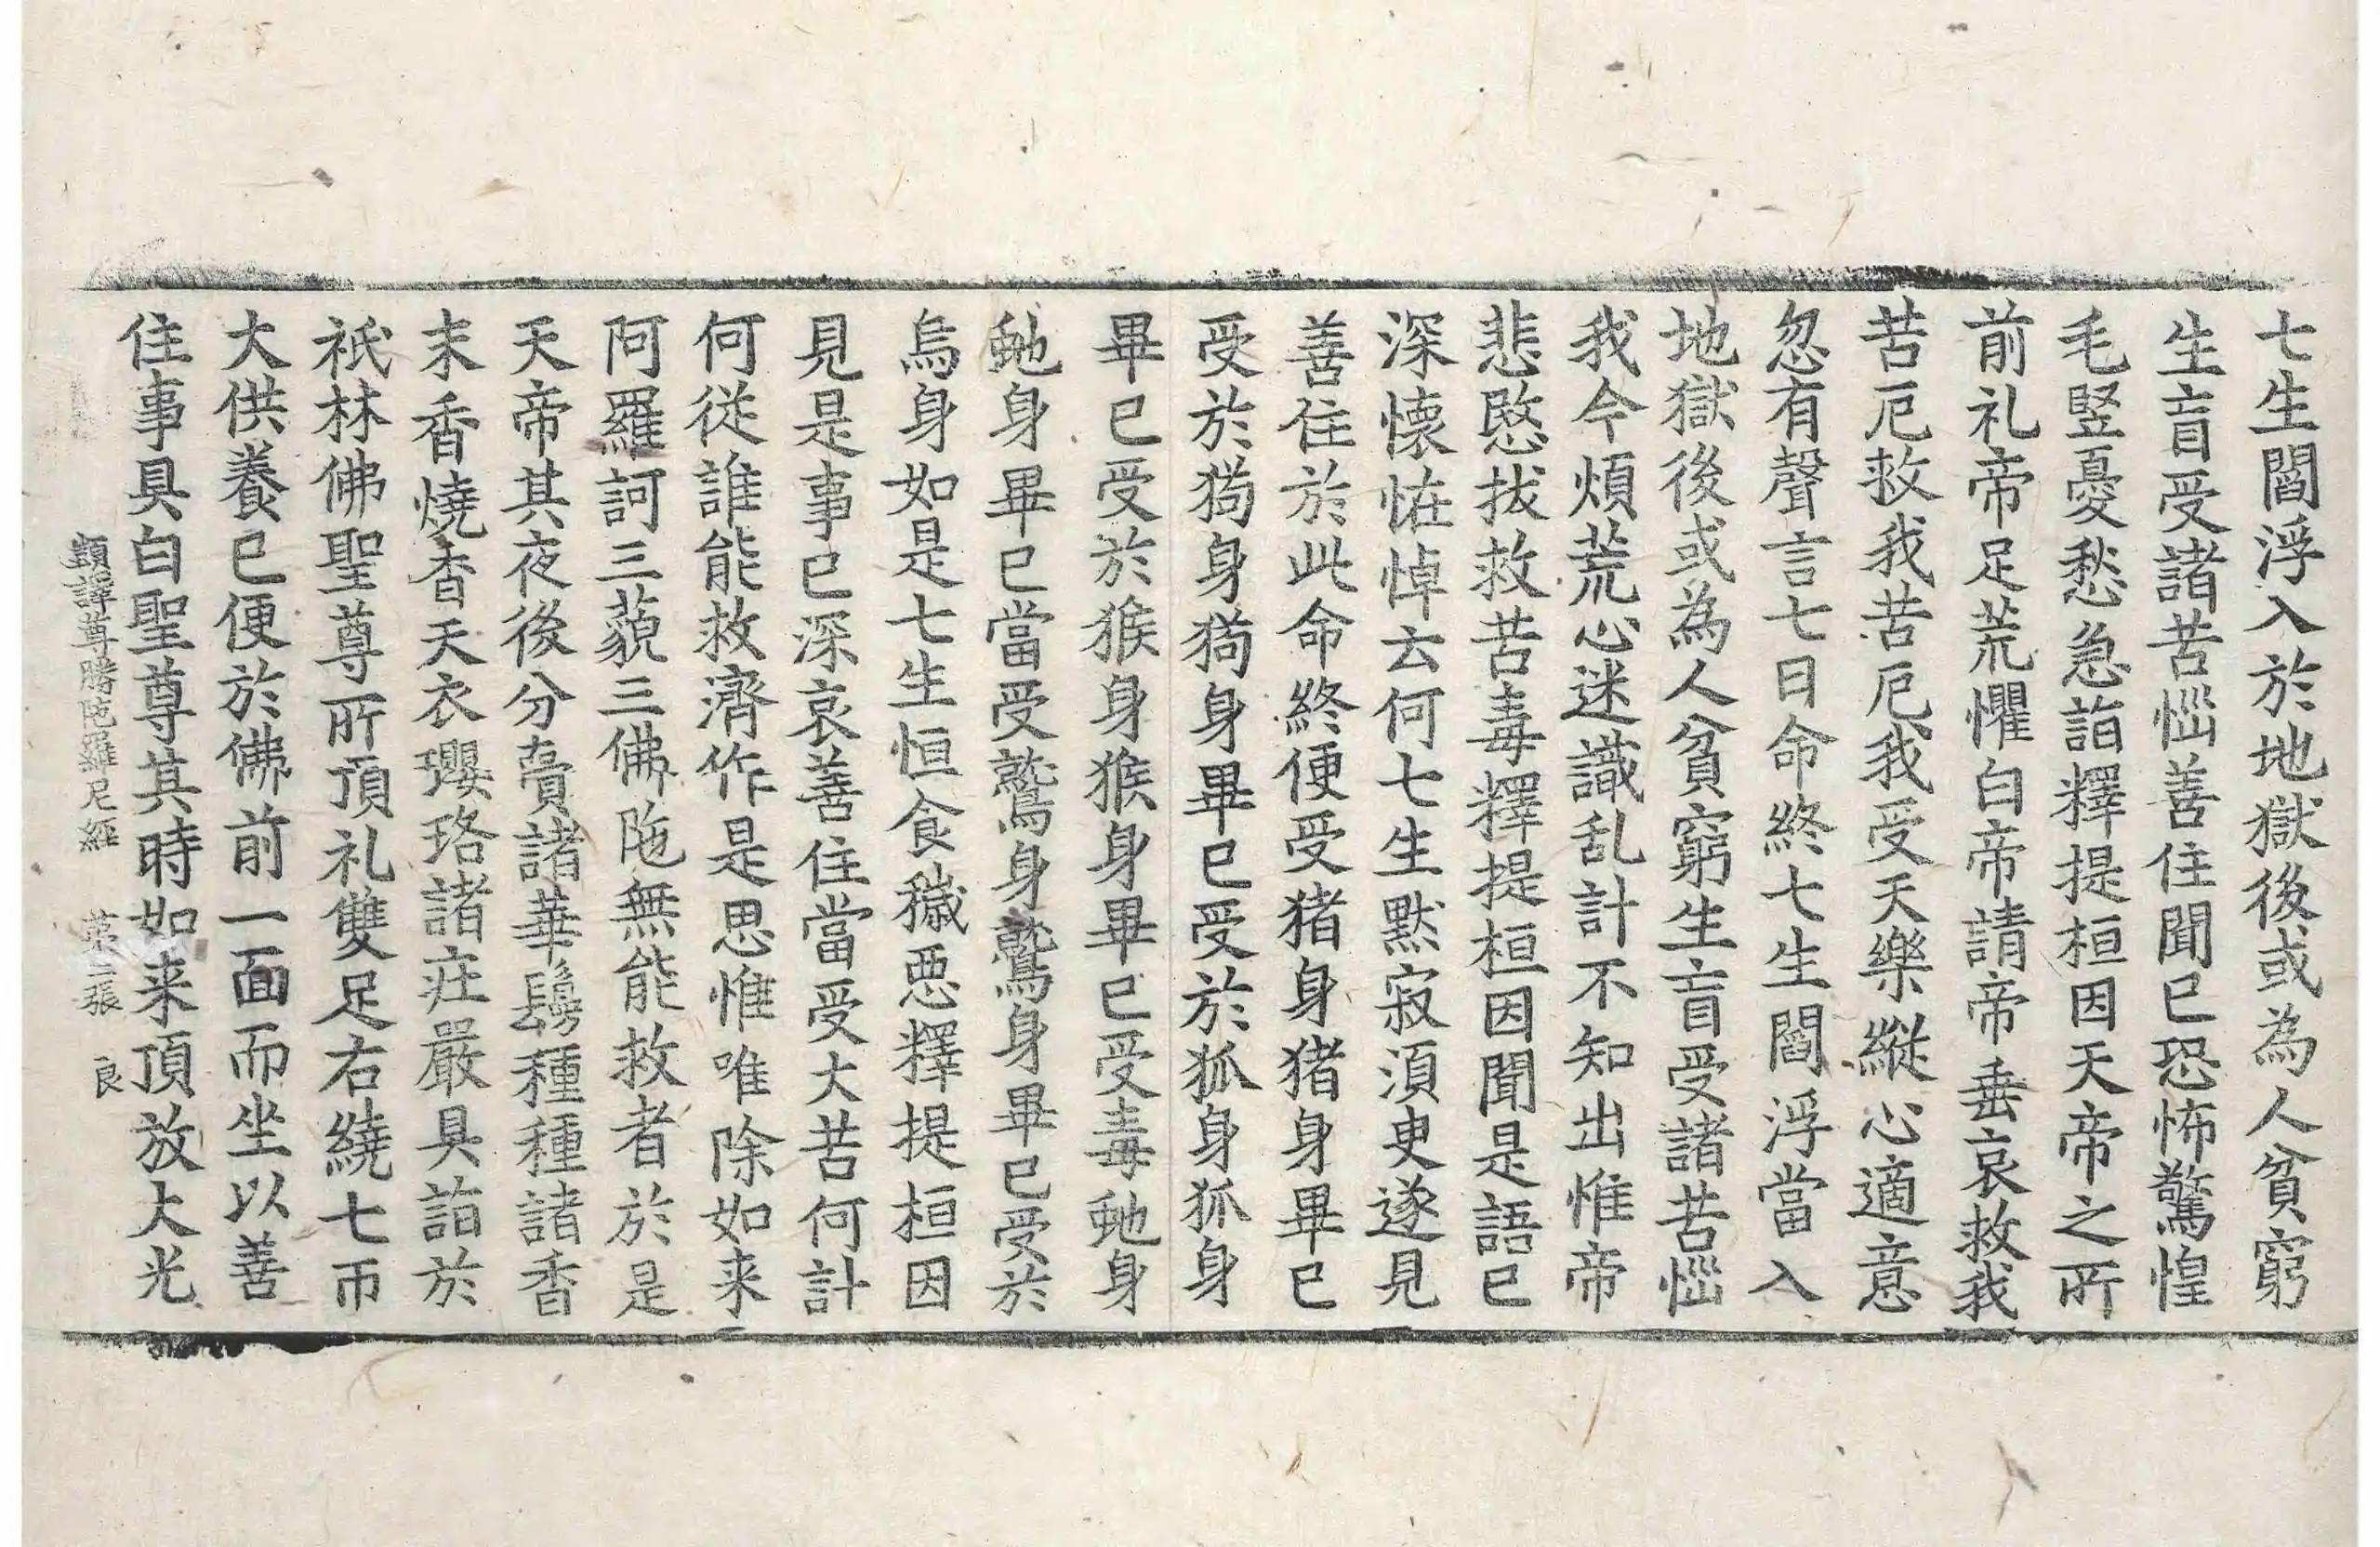 七生閻浮入於地獄後或為人貧窮
生盲受諸苦惱善住聞已恐怖驚惶
毛竪憂愁急詣釋提桓因天帝之所
前礼帝足荒懼白帝請帝垂哀救我
苦厄救我苦厄我受天樂縱心適意
忽有聲言七日命終七生閻浮當入
地獄後或為人貧窮生盲受諸苦惱
我今煩荒心迷識乱計不知出惟帝
悲愍拔救苦毒釋提桓因聞是語已
深懷恠悼云何七生默寂湏㬰遂見
善住於此命終便受猪身猪身畢已
受於猗身猗身畢已受於狐身狐身
畢已受於猴身猴身畢已受毒虵身
虵身畢已當受鷲身鷲身畢已受於
烏身如是七生恒食穢惡釋提桓因
見是事已深哀善住當受大苦何計
何從誰能救濟作是思惟唯除如来
阿羅訶三藐三佛陁無能救者於是
天帝其夜後分賷諸華鬘種種諸香
末香燒香天衣瓔珞諸莊嚴具詣於
祇林佛聖尊所頂礼雙足右繞七帀
大供養已便於佛前一面而坐以善
住事具白聖尊其時如来頂放大光
顗譯尊勝陁羅尼經 苐二張 良